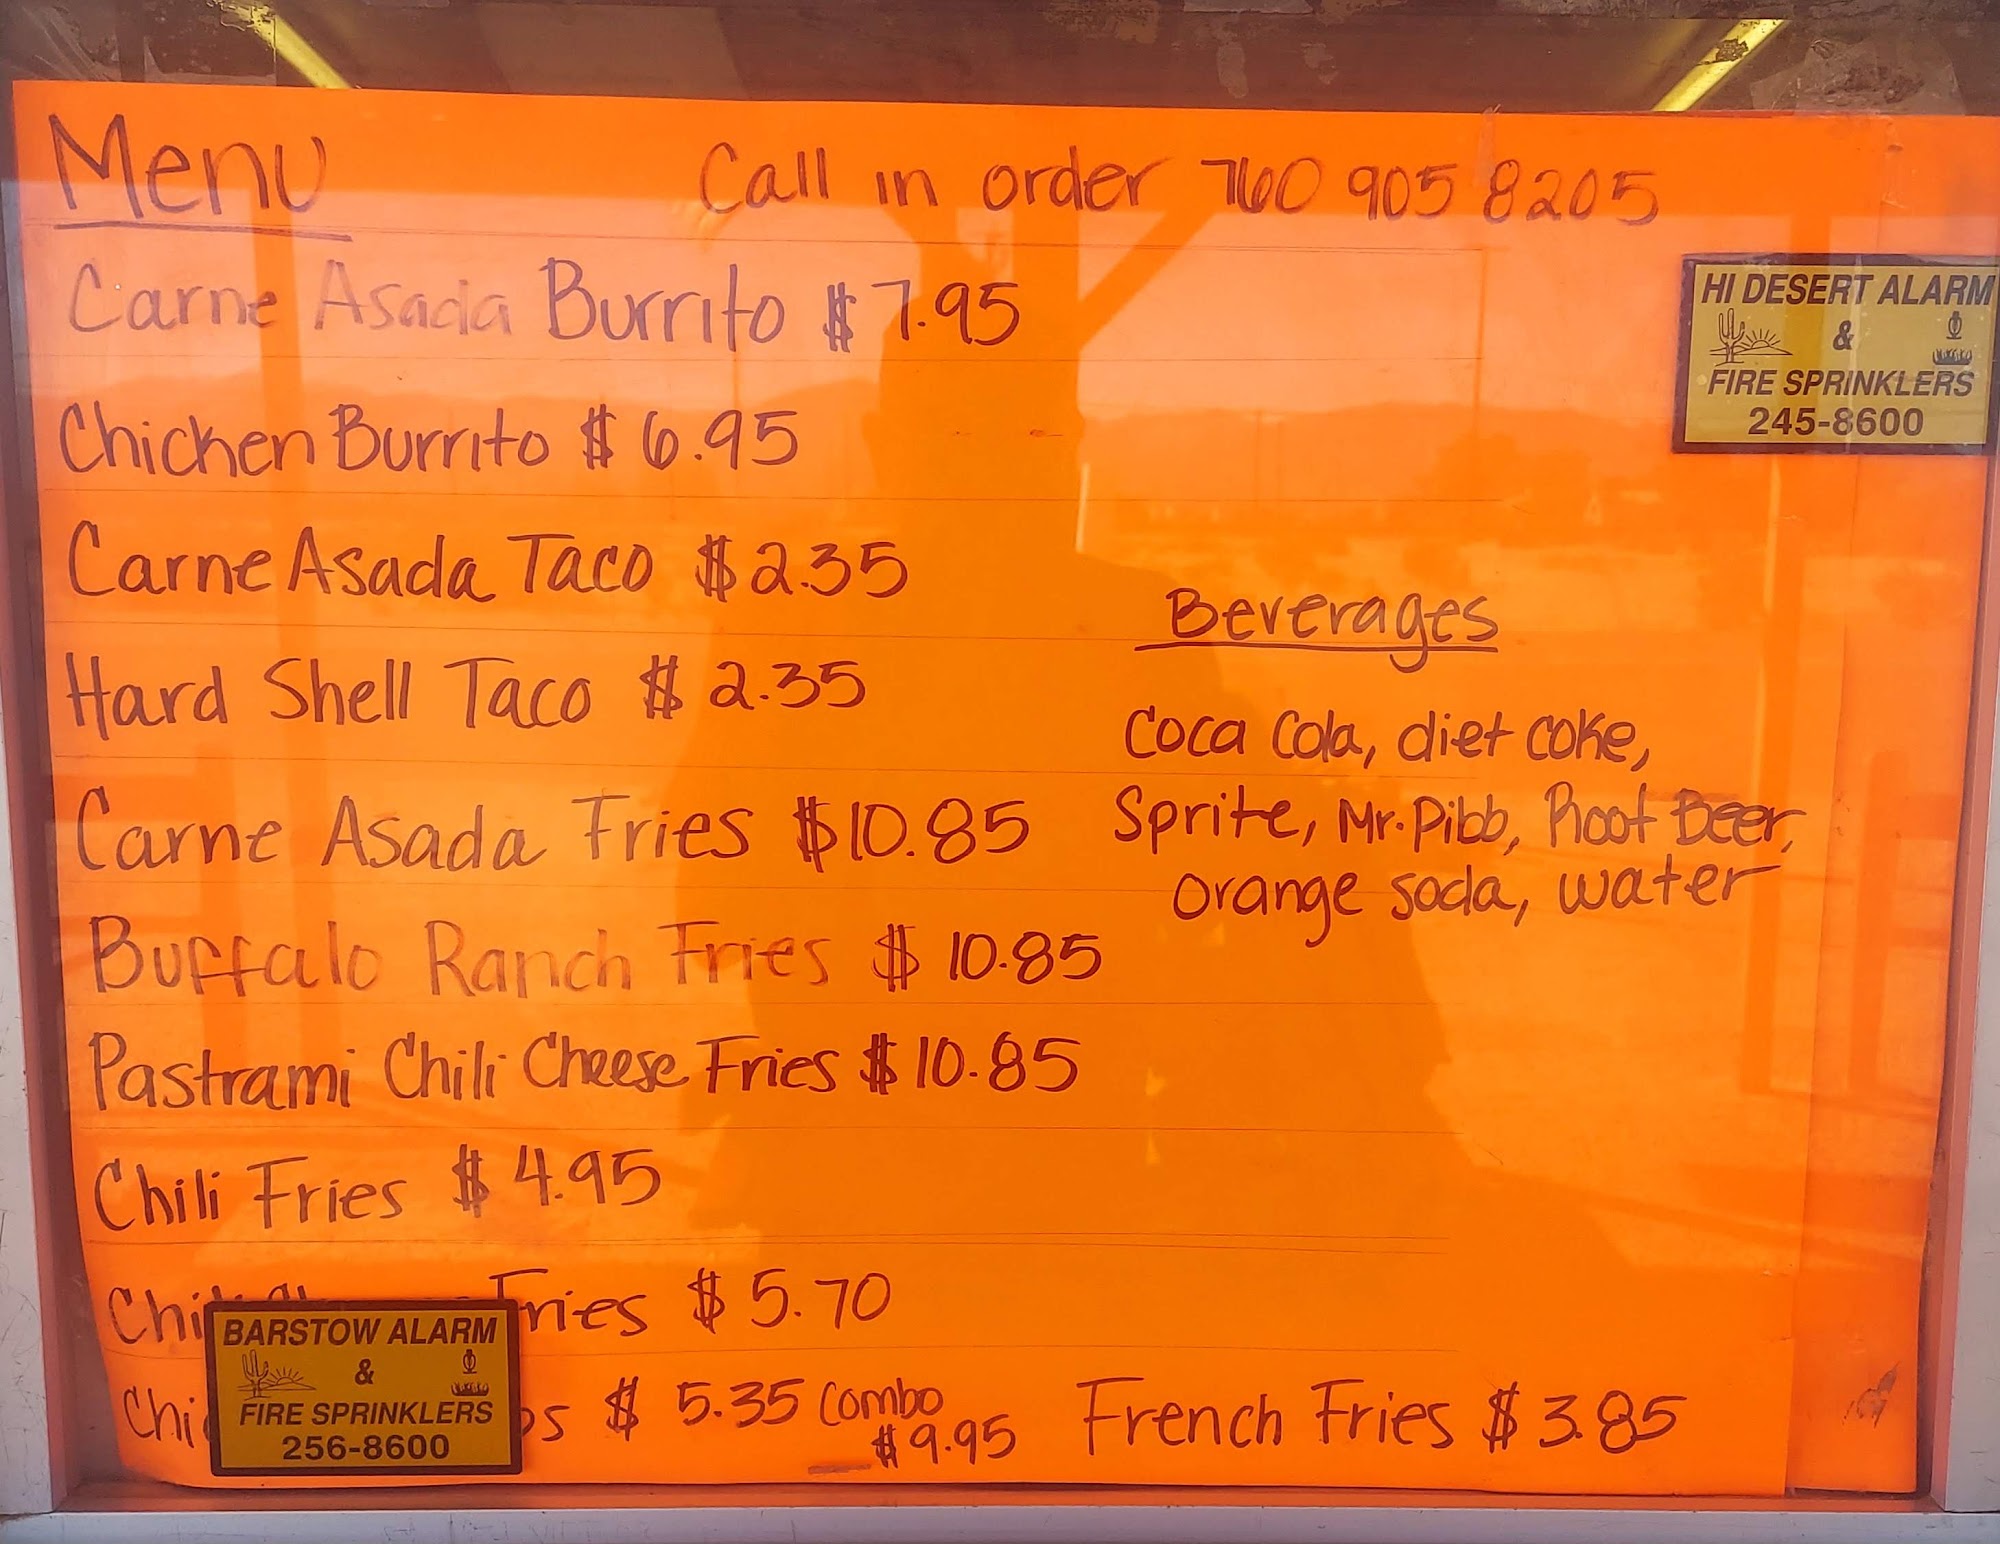 Menu
Call in order 760 905 8205
Carne Asada Burrito $7.95
Chicken Burrito $6.95
Carne Asada Taco $2.35
Hard Shell Taco $2.35
Carne Asada Fries $10.85
Buffalo Ranch Fries $10.85
Pastrami Chili Cheese Fries $10.85
Chili Fries $4.95
Fries $5.70
$5.35 Combo
$9.95
French Fries $3.85
Beverages
Coca Cola, diet coke,
Sprite, Mr. Pibb, Root Beer,
orange soda, water
HI DESERT ALARM
&
FIRE SPRINKLERS
245-8600
BARSTOW ALARM
&
FIRE SPRINKLERS
256-8600